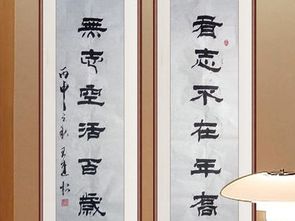 有志不在年高
無志空活百歲
丙申之秋